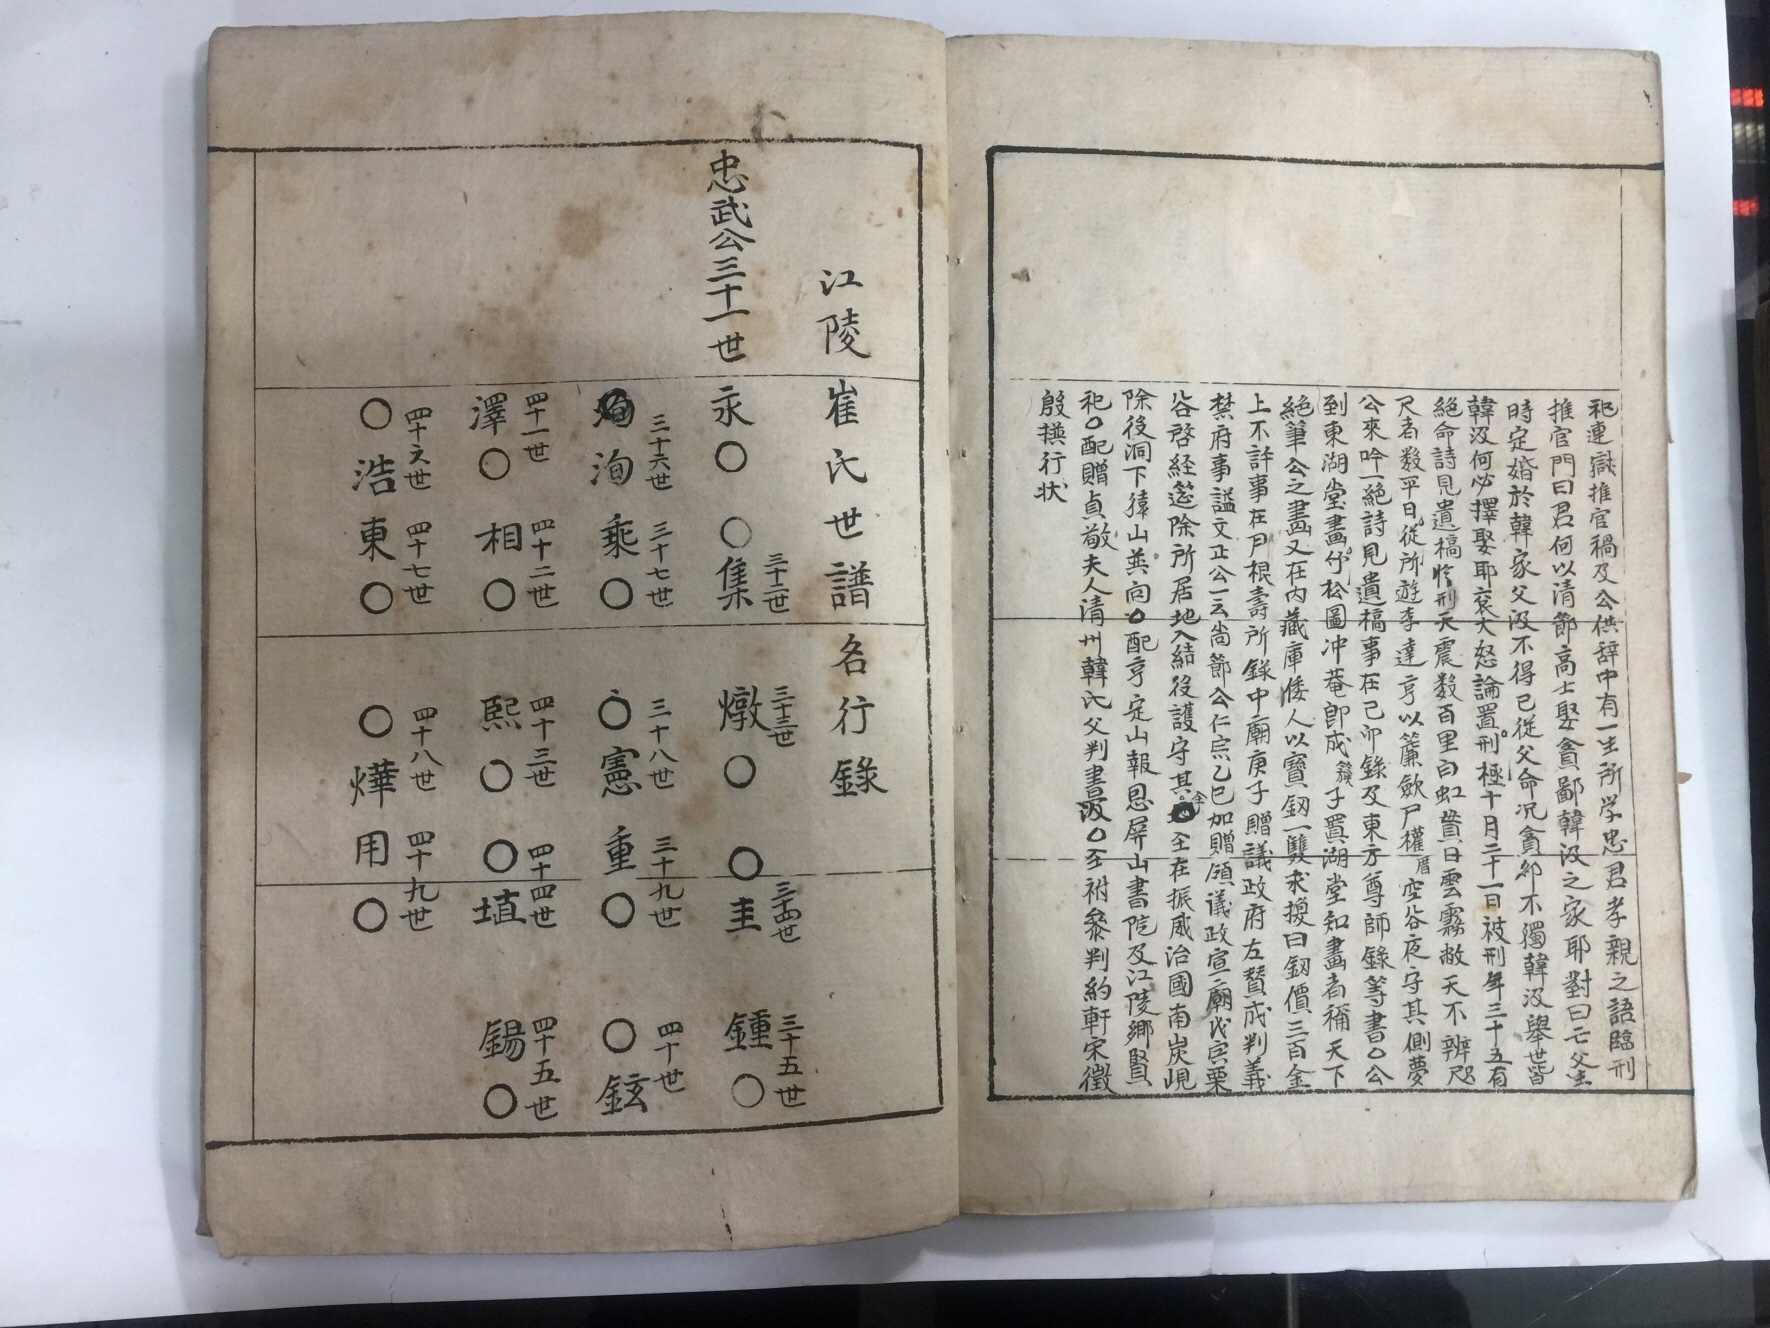 祀連嶽推官禍及公供辞中有一生所学忠君孝親之語臨刑
推官門曰君何以清節高士娶貪鄙韓汲之家耶對曰亡父生
時定婚於韓家父汲不得已從父命况貪鄙不獨韓汲舉世皆
韓汲何必擇娶耶衮大怒論置刑極十月二十一日被刑年三十五有
絶命詩見遺稿臨刑天震数百里白虹貫日雲霧敝天不辨咫
尺者数平日從所遊李達亨以簾歛尸權厝空谷夜守其側夢
公來吟一絶詩見遺稿事在己卯錄及東方尊師錄等書〇公
到東湖堂畫竹松圖冲菴卽成讚子置湖堂知畫者稱天下
絶筆公之畵又在內藏庫倭人以寶釰一雙求換曰釰價三百金
上不許事在尹根壽所錄中廟庚子贈議政府左贊成判義
禁府事謚文正公一云尚節公仁宗乙巳加贈領議政宣廟戊辰栗
谷啓経筵除所居地入結役護守其至在振威治國南炭峴
除後洞下猿山巽向〇配亨定山報恩屏山書院及江陵鄕賢
祀〇配贈貞敬夫人清州韓氏父判書汲〇至祔叅判約軒宋徵
殷撰行状
江陵崔氏世譜名行錄
忠武公三十一世 永〇 〇集三十二世 燉三十三世〇 〇圭三十四世 鍾三十五世〇
洵三十六世 乘三十七世〇 〇憲三十八世 重三十九世〇 〇鉉四十世
澤四十一世〇 相四十二世〇 熙四十三世〇 〇埴四十四世 錫四十五世〇
〇浩四十六世 東四十七世〇 〇燁四十八世 用四十九世〇